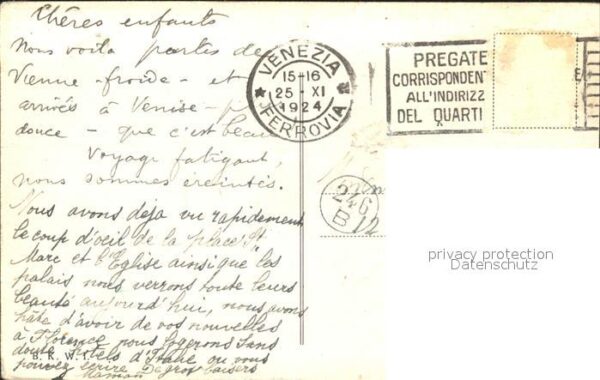 Chères enfants
Nous voila parties de
Vienne - froide - et
arrivés à Venise -
douce - que c'est beau
Voyage fatigant,
nous sommes éreintés.
Nous avons déja vu rapidement
le coup d'oeil de la place St
Marc et l'Eglise ainsi que les
palais nous verrons toute leurs
beauté aujourd'hui, nous avons
hâte d'avoir de vos nouvelles
à Florence nous logerons sans
doute Hôtel d'Italie ou vous
pouvez écrire De gros baisers
Maman
B. K. W. I.
VENEZIA
15-16
25 · XI
1924
FERROVIA
PREGATE
CORRISPONDEN
ALL'INDIRIZZ
DEL QUARTI
246
B
12
privacy protection
Datenschutz